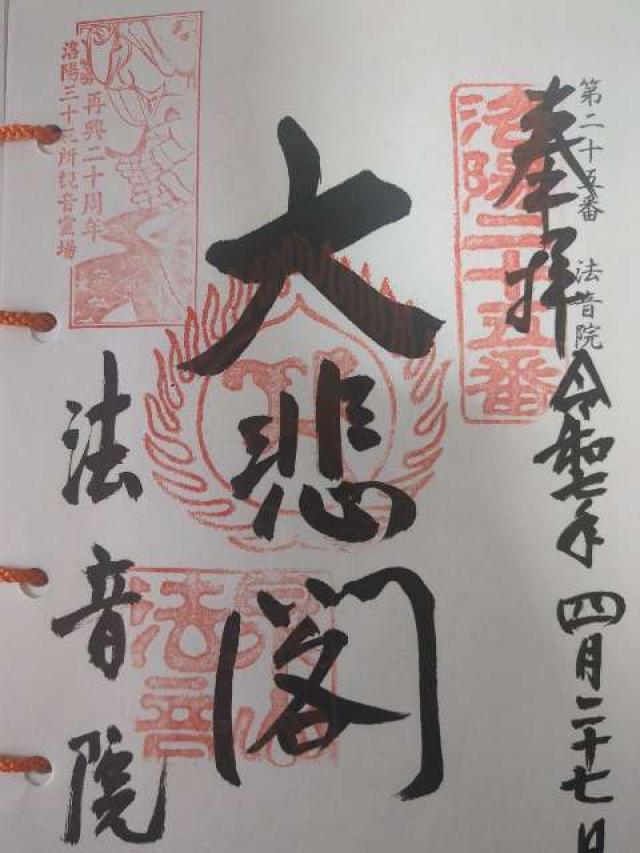 第二十五番　法音院
奉拝
令和七年四月二十七日
洛陽二十五番
大悲閣
法音院
再興二十周年
洛陽三十三所観音霊場